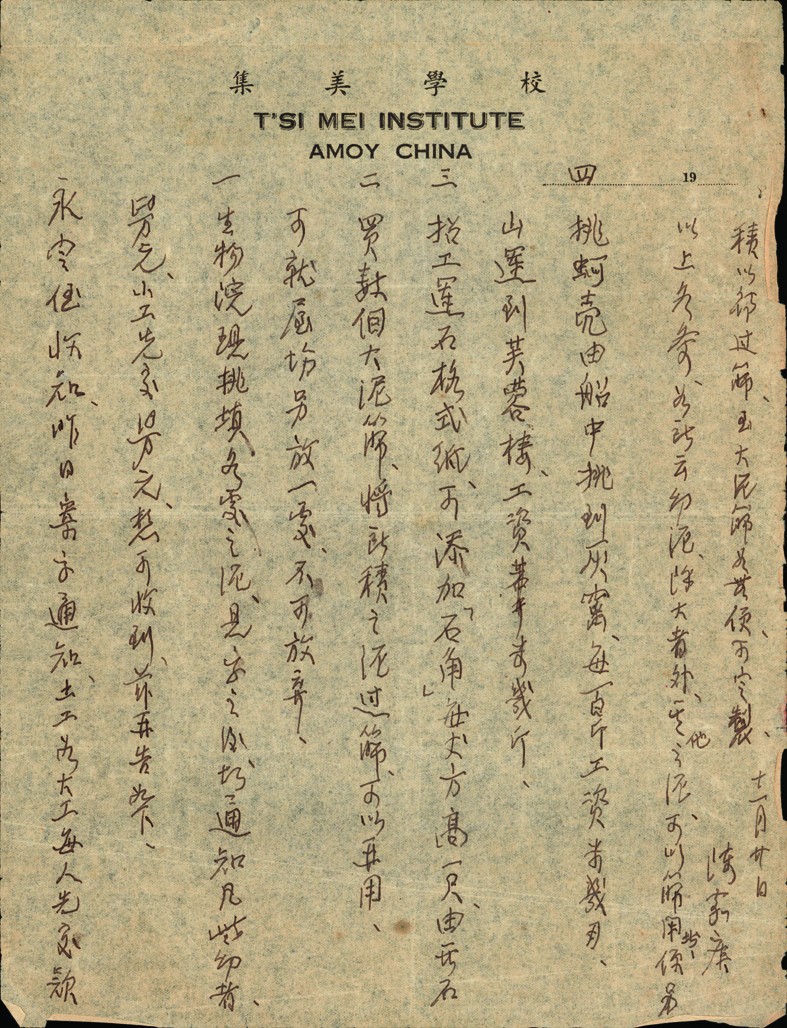 集美學校
T'SI MEI INSTITUTE
AMOY CHINA
19
永定侄收知、昨日寄字通知、土工及大工每人先交款
元、小工先交元、想可收到、茲再告如下、
一 生物院現挑填各處之泥、見字之後、切通知凡些幼者、
可就坊另放一處、不可放棄、
二 買數個大泥篩、將所積之泥过篩、可以再用、
三 招工運石格式紙、可添加「石角」每丈方高一尺、由后石
山運到芙蓉樓、工資幾斤、
四 挑蚵壳由船中挑到灰窰、每一百斤工資幾、
以上各条、所云幼泥、除大者外、其他之泥、可以篩用便
積以待过篩、至大泥篩如無便、可定製、
十一月廿日
陳嘉庚